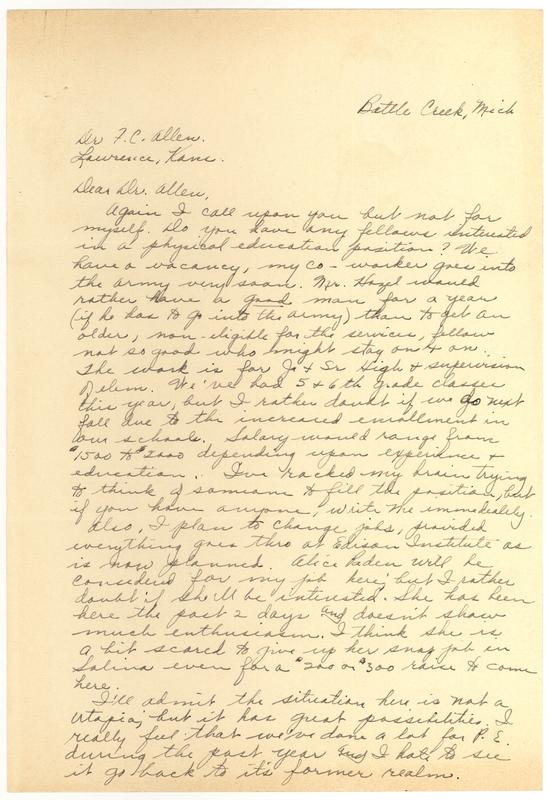 Battle Creek, Mich
Dr F.C. Allen.
Lawrence, Kans.
Dear Dr. Allen,
Again I call upon you but not for
myself. Do you have any fellows interested
in a physical education position? We
have a vacancy, my co-worker goes into
the army very soon. Mr. Hazel would
rather have a good man for a year
(if he has to go into the army) than to get an
older, non-eligible for the services, fellow
not so good who might stay on & on.
The work is for Jr & Sr High & supervision
of elem. We've had 5 & 6th grade classes
this year, but I rather doubt if we do next
fall due to the increased enrollment in
our schools. Salary would range from
$1500 to $2000 depending upon experience &
education. I've racked my brain trying
to think of someone to fill the position, but
if you have anyone, write me immediately.
Also, I plan to change jobs, provided
everything goes thro at Edison Institute as
is now planned. Alice will be
considered for my job here, but I rather
doubt if she'll be interested. She has been
here the past 2 days and doesn't show
much enthusiasm. I think she is
a bit scared to give up her snap job in
Salina even for a $200 or $300 raise to come
here.
I'll admit the situation here is not a
utopia, but it has great possibilities. I
really feel that we've done a lot for P.E.
during the past year and I hate to see
it go back to its former realm.